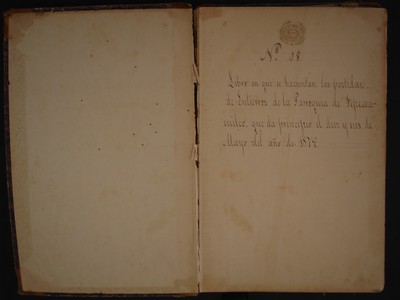 Nº 38.
Libro en que se hacientan las partidas
de Entierros de la Parroquia de
que da principio el dies y seis de
Marzo del año de 1872